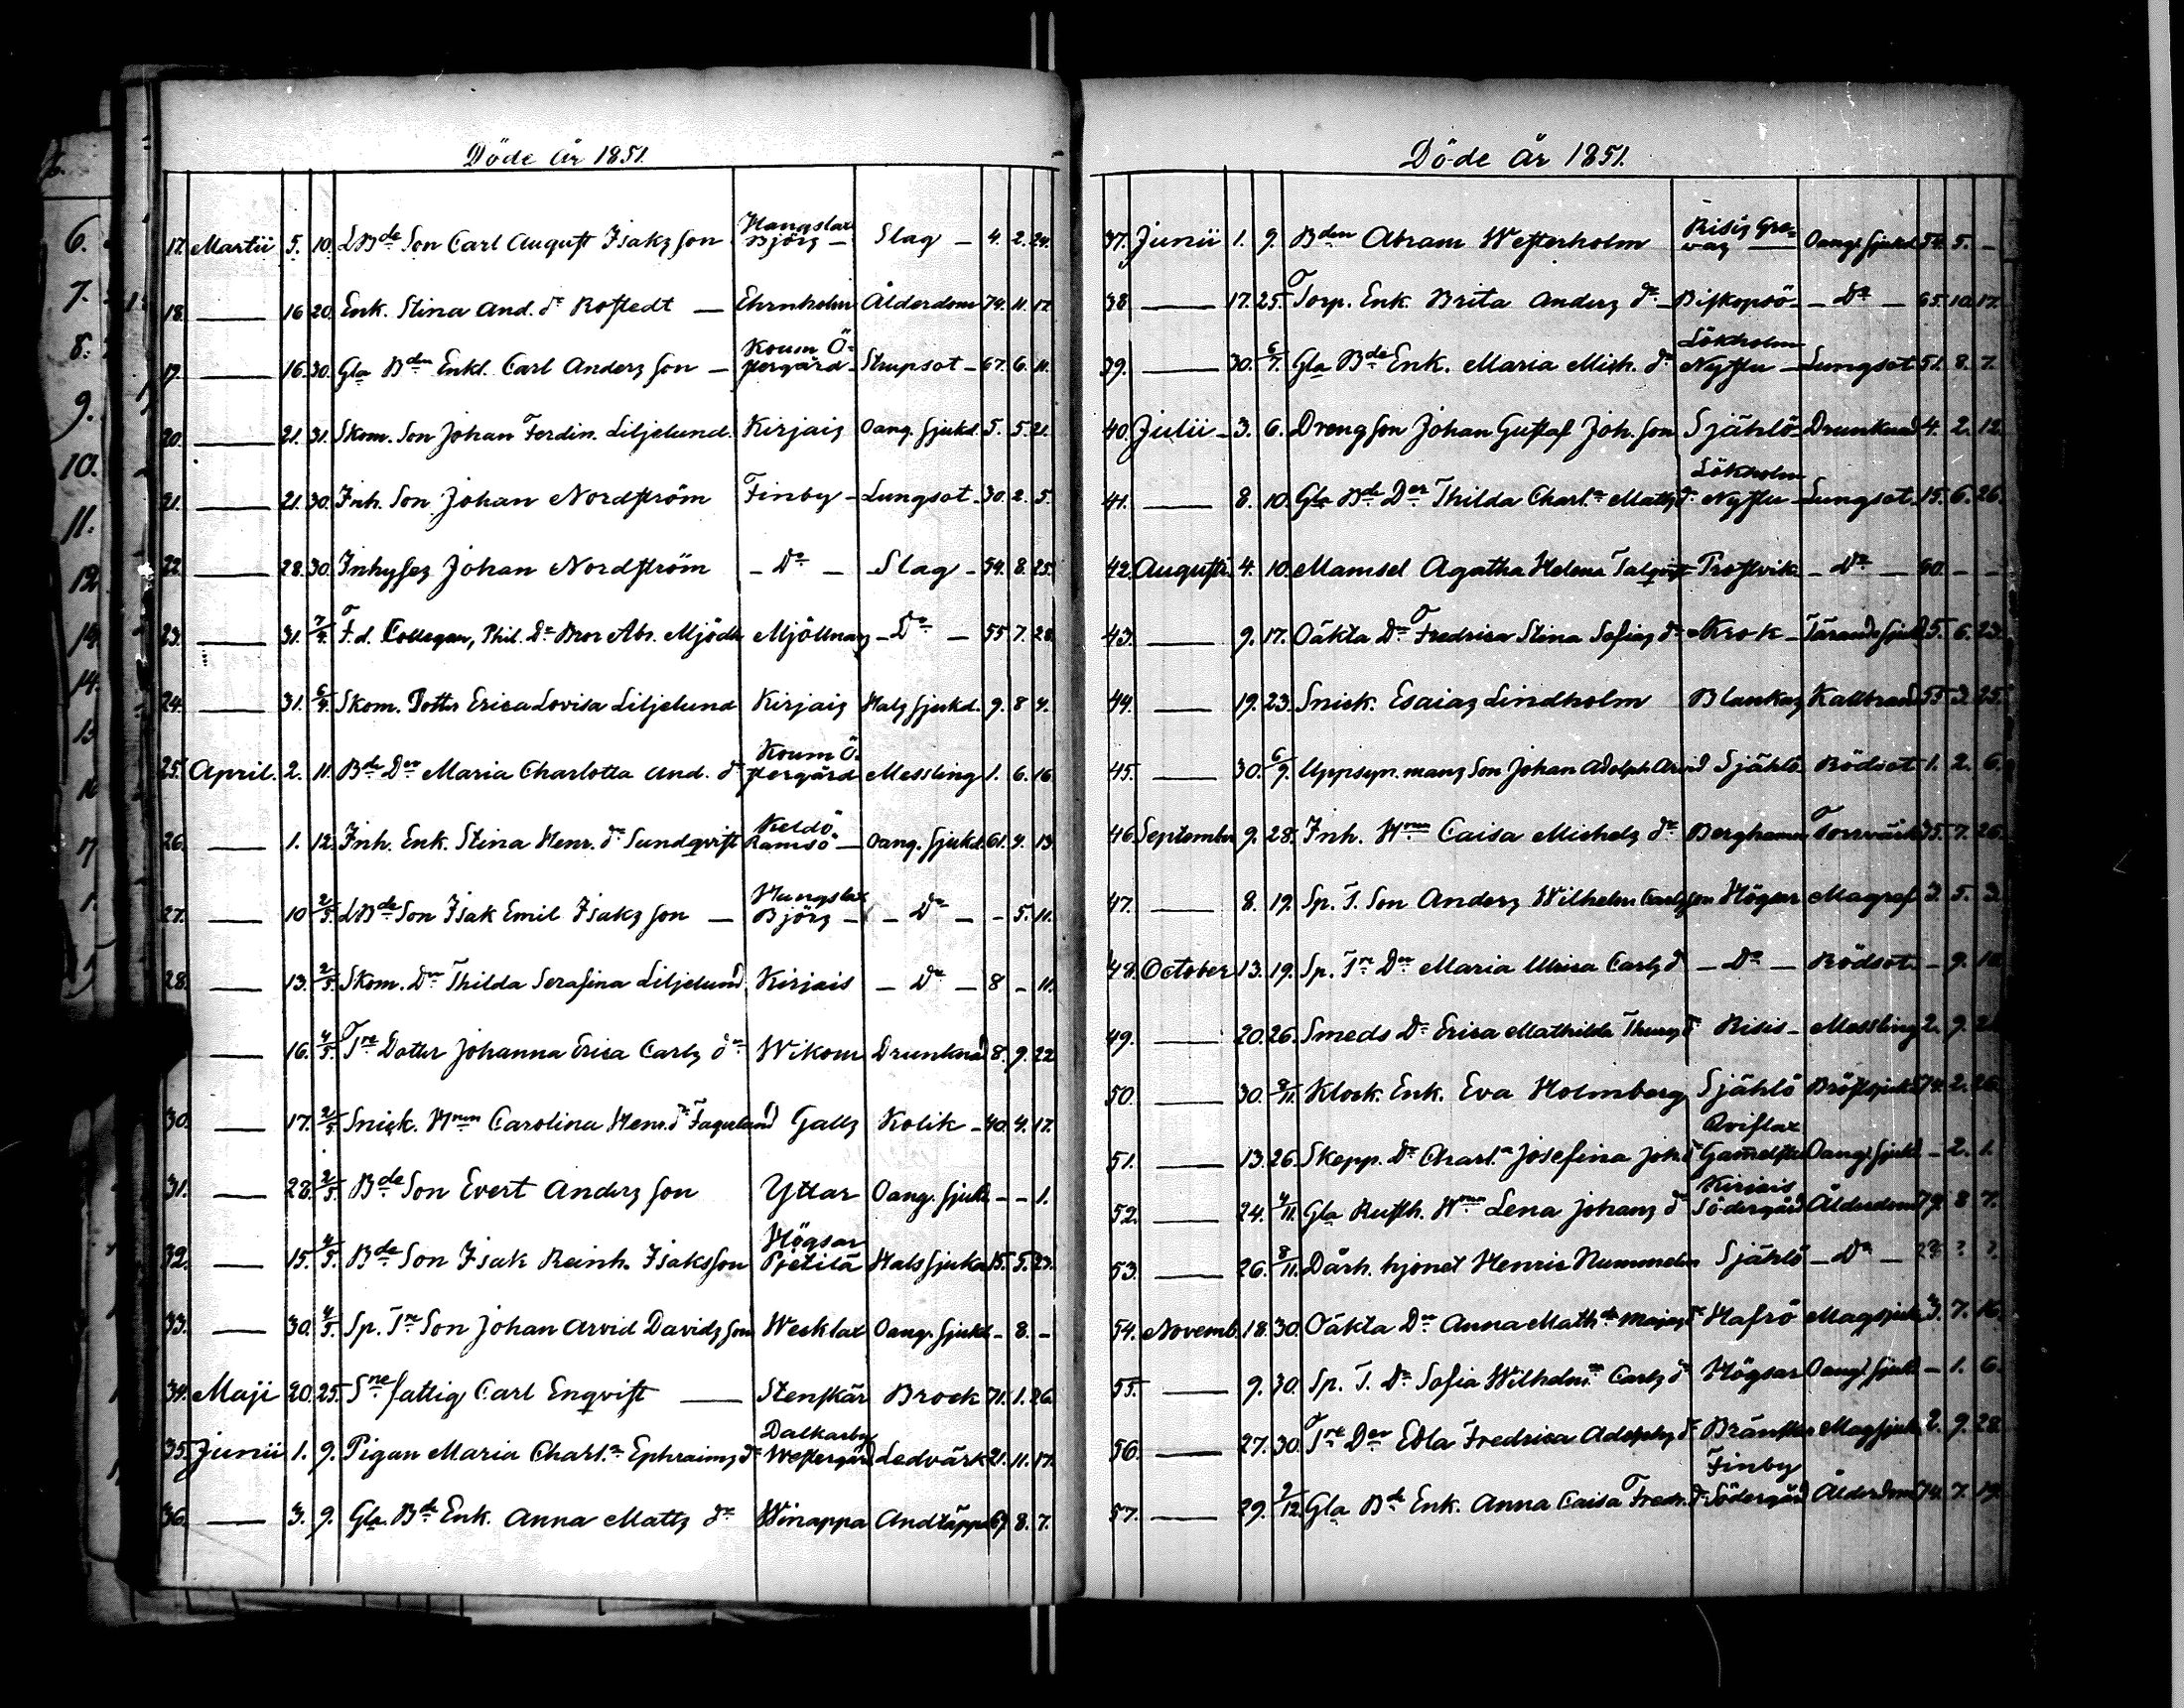 Döde år 1851.
17. Martii 5. 10. LBde Son Carl August Isaksson Hangslax Björs - Slag - 4. 2. 24.
18. — 16 20. Enk. Stina And. dr Rostedt — Ehrnholm Ålderdom 74. 11. 17.
19. — 16. 30. Gla Bdn Enkl. Carl Anders son - Koum Östergård - Strupsot - 67. 6. 11.
20. — 21. 31. Skom. Son Johan Ferdin. Liljelund. Kirjais Oang. sjukd. 5. 5. 21.
21. — 21. 30. Inh. Son Johan Nordström Finby - Lungsot. 30. 2. 5.
22. — 28. 30. Inhyses Johan Nordström - Do - Slag - 54. 8. 25.
23. — 31. 7/4. F.d. Collegan, Phil. Dr Bror Abr. Mjödh Mjöllnas - Do - 55 7. 28.
24. — 31. 6/4. Skom. Dotter Erica Lovisa Liljelund Kirjais Hals sjukd. 9. 8 4.
25. April. 2. 11. Bde Dr Maria Charlotta And. dr Koum Östergård Messling 1. 6. 16.
26. — 1. 12. Inh. Enk. Stina Henr. dr Sundqvist Keldö Ramsö — Oang. sjukd. 61. 4. 13.
27. — 10 2/5. LBde Son Isak Emil Isaks son — Hangslax Björs - - Do - - 5. 11.
28. — 13. 2/5. Skom. Dr Thilda Serafina Liljelund. Kirjais - Do - 8 - 11.
— 16. 4/5. Tre Dotter Johanna Erica Carls dr Wikom Drunknad 8. 9. 22
30. — 17. 2/5. Snick. Hnn Carolina Henr. dr Fagerlund Galts Kolik - 40. 4. 17.
31. — 28. 2/5. Bde Son Evert Anders son Yttar Oang. sjukd. - - 1.
32. — 15. 4/5. Bde Son Isak Reinh. Isaksson Högsar Pjetilä Hals sjuka 15. 5. 23.
33. — 30. 4/5. Sp. Tre Son Johan Arvid Davids son Wecklax Oang. sjukd. - 8. -
34. Maji 20. 25. Sne fattig Carl Enqvist — Stenskär Brock 71. 1. 26.
35. Junii 1. 9. Pigan Maria Charl.a Ephraims dr Dalkarby Westergård Ledvärk 21. 11. 17.
36. — 3. 9. Gla. Bde Enk. Anna Matts dr Winappa Andtäppa 67. 8. 7.
Döde år 1851.
37. Junii 1. 9. Bden Abram Westerholm Risis Grevas — Oang. sjukd. 54. 5. -
38 — 17. 25. Torp. Enk. Brita Anders dr - Biskopsö - - Do - 65. 10. 17.
39. — 30. 6/7. Gla Bde Enk. Maria Mich. dr Lökholm Nystu - Lungsot 51. 8. 7.
40. Julii - 3. 6. Dreng son Johan Gustaf Joh. son Själlö Drunknad 4. 2. 12.
41. — 8. 10. Gla Bde Der Thilda Charl.a Mats d. Lökholm Nystu - Lungsot 15. 6. 26.
42. Augusti 4. 10. Mamsel Agatha Helena Talqvist Prostvik - Do - 60. - -
43. — 9. 17. Oäkta Dr Fredrica Stina Sofias dr Krok - Tärande sjuk. 5. 6. 23.
44. — 19. 23. Snick. Esaias Lindholm Blankas Kallbrand 55 3. 25.
45. — 30. 6/9. Uppsyn.mans Son Johan Adolph Själlö Rödsot 1. 2. 6.
46. September 9. 28. Inh. Hnn Caisa Michels dr Berghamn Torrvärk 35. 7. 26.
47. — 8. 19. Sp. T. Son Anders Wilhelm Carlsson Högsar Magref 3. 5. 3.
48. October 13. 19. Sp. Tre Dr Maria Ulrica Carls d. - Do - Rödsot. - 9. 10
49. — 20. 26. Smeds Dr Erica Mathilda Thures d. Risis - Messling 2. 9. 21
50. — 30. 2/11. Klock. Enk. Eva Holmberg Själlö Bröstsjuk. 74. 2. 26.
51. — 13. 26. Skepp. Dr Charl.a Josefina Joh. d. Qviflax Gammelstu Oang. sjukd. - 2. 1.
52. — 24. 4/11. Gla Rusth. Hnn Lena Johans dr Kirjais Södergård Ålderdom 79. 8 7.
53. — 26. 8/11. Dårh. hjonet Henric Nummelin Själlö - Do - ? ?
54. Novemb. 18. 30. Oäkta Dr Anna Math.da Majas dr Hafrö Magsjuk. 3. 7. 16.
55. — 9. 30. Sp. T. Dr Sofia Wilhelm.a Carls dr Högsar Oang. sjukd. - 1. 6.
56. — 27. 30. Tre Der Edla Fredrica Adolphs dr Bränskär Magsjuk. 2. 9. 28.
57. — 29. 2/12. Gla Bde Enk. Anna Caisa Fredr. dr Finby Södergård Ålderdom 74. 7. 19.